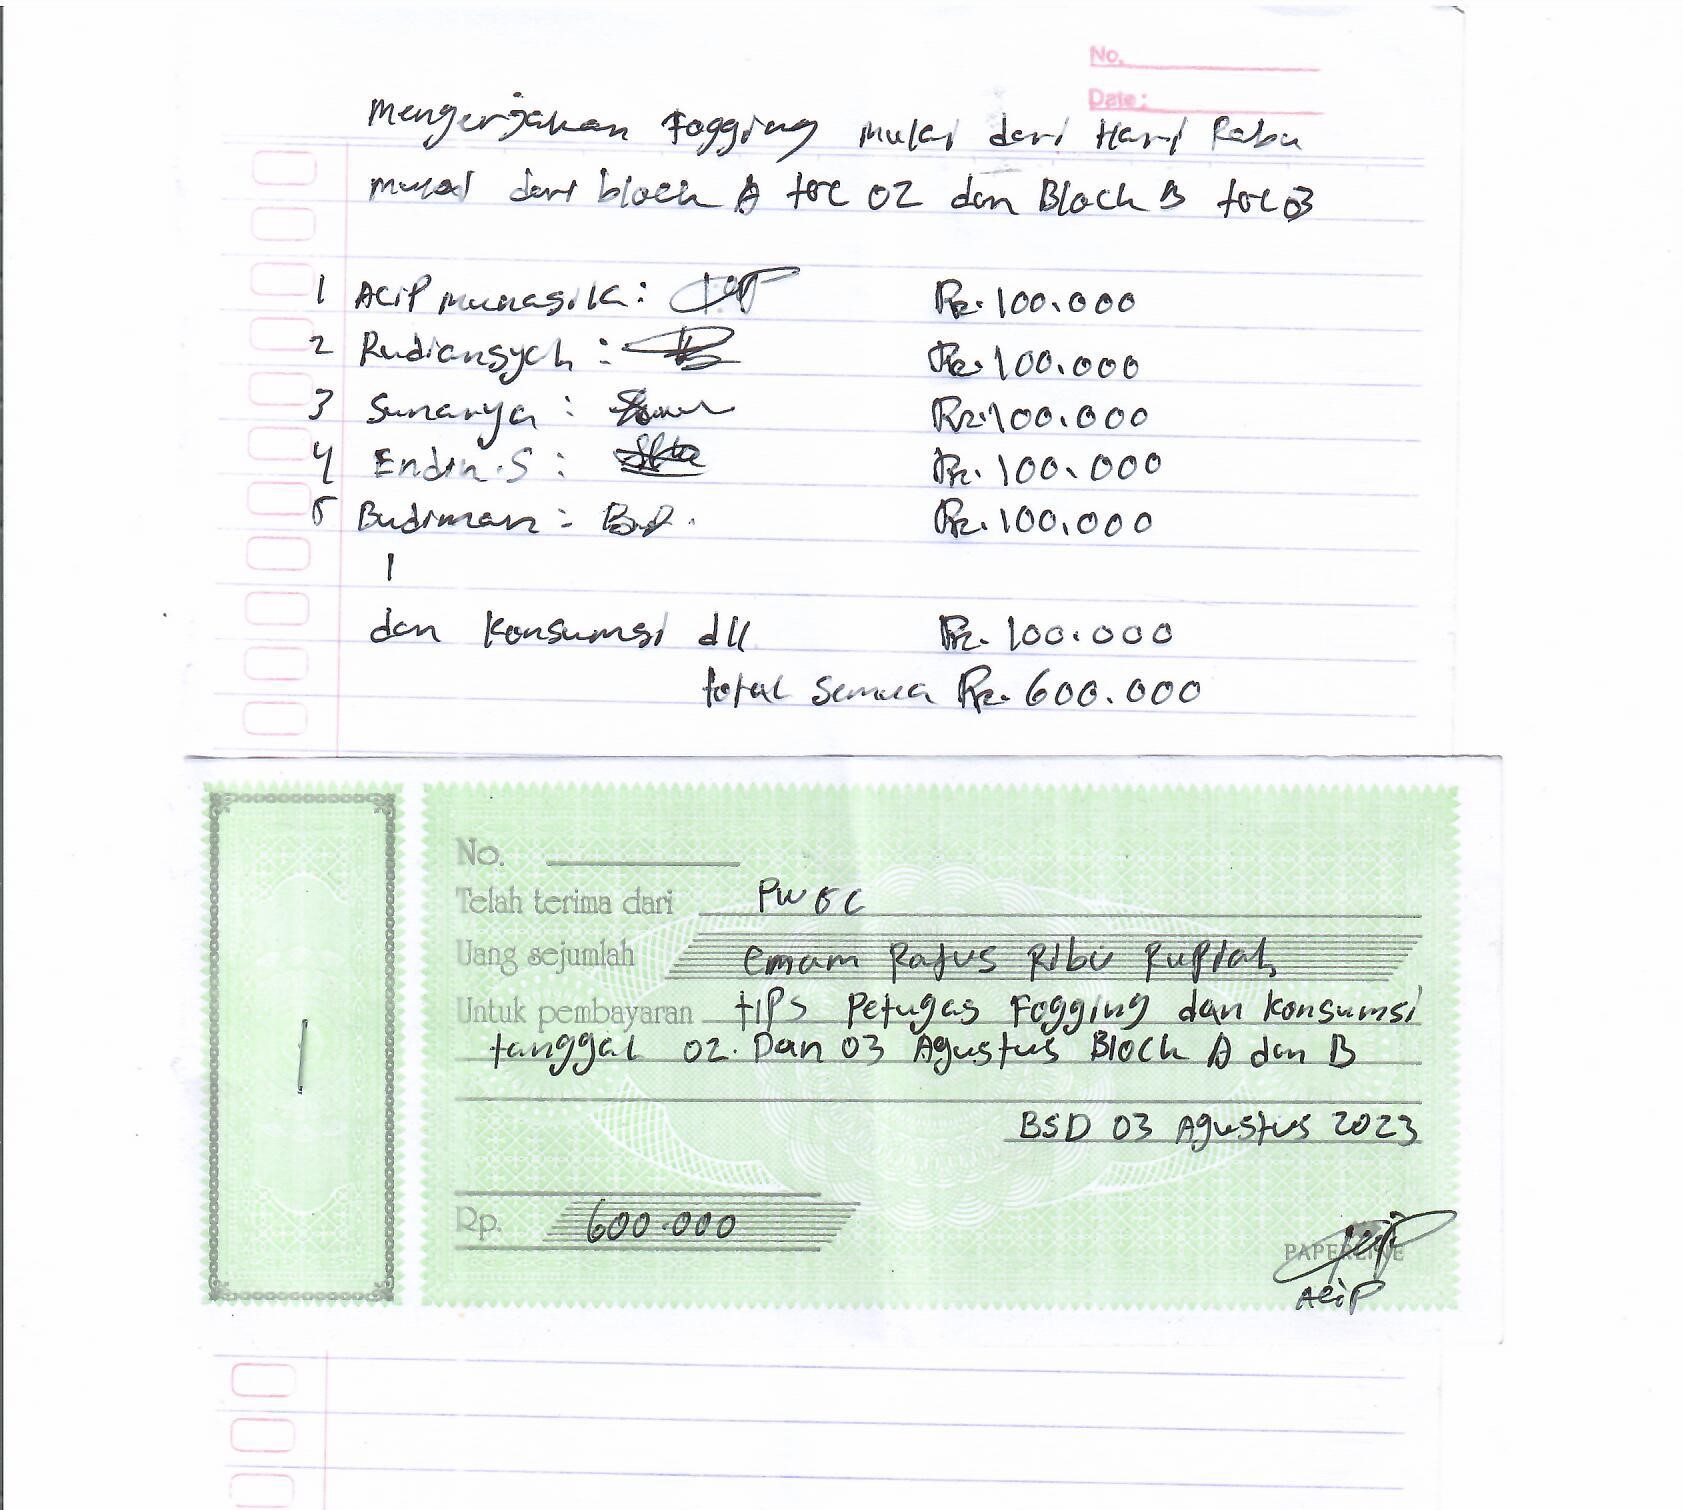 No.
Date:
Mengerjakan Fogging mulai dari Hari Rabu
mulai dari block A tgl 02 dan Block B tgl 03
1 Acip munasik: Rp. 100.000
2 Rudiansyah: Rp. 100.000
3 Sunarya: Rp. 100.000
4 Endin.S: Rp. 100.000
5 Budiman: Rp. 100.000
dan konsumsi dll Rp. 100.000
total semua Rp. 600.000
No.
Telah terima dari PWGC
Uang sejumlah enam Ratus Ribu Rupiah
Untuk pembayaran tips Petugas Fogging dan konsumsi
tanggal 02. Dan 03 Agustus Block A dan B
BSD 03 Agustus 2023
Rp. 600.000
PAPERLINE
Acip